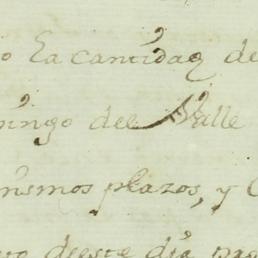 o La cantidad de
mingo del Valle
mismos plazos, y
deeste dia